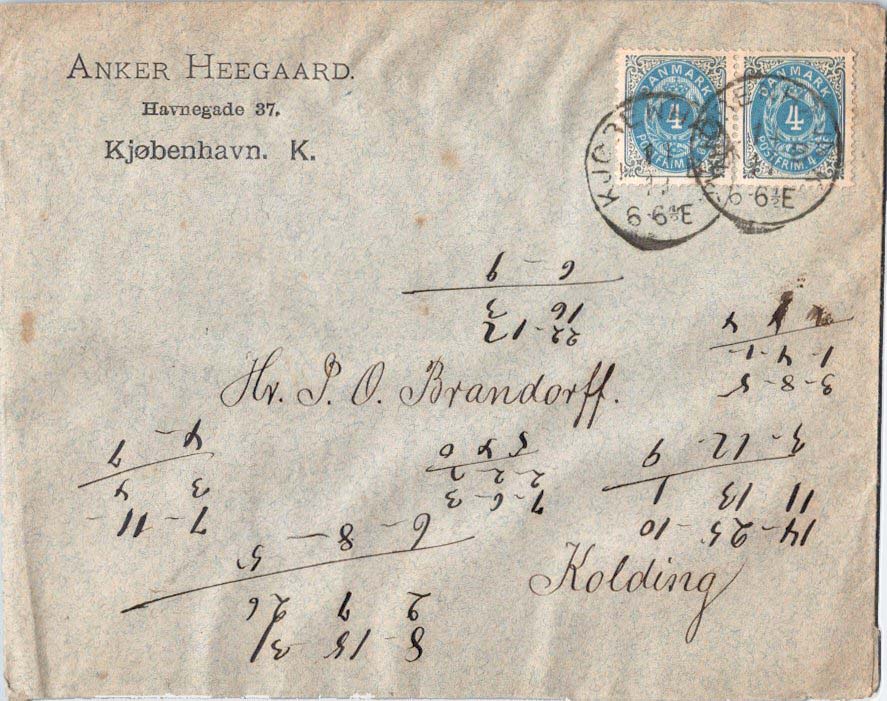 ANKER HEEGAARD.
Havnegade 37.
Kjøbenhavn. K.
DANMARK
4
POSTFRIM.
DANMARK
4
POSTFRIM. 4
KJØBENHAVN
6-6½E
KJØBENHAVN
6-6½E
22-12
16 3
6 - 9
3-8-5
1-4-1-
4
Hr. P. O. Brandorff.
7-11-
3 4
4-7
7-6-3
5 4 0
14-25-10
11 13 1
3-12-9
8-15-31
2 7 26
6-8-5
Kolding